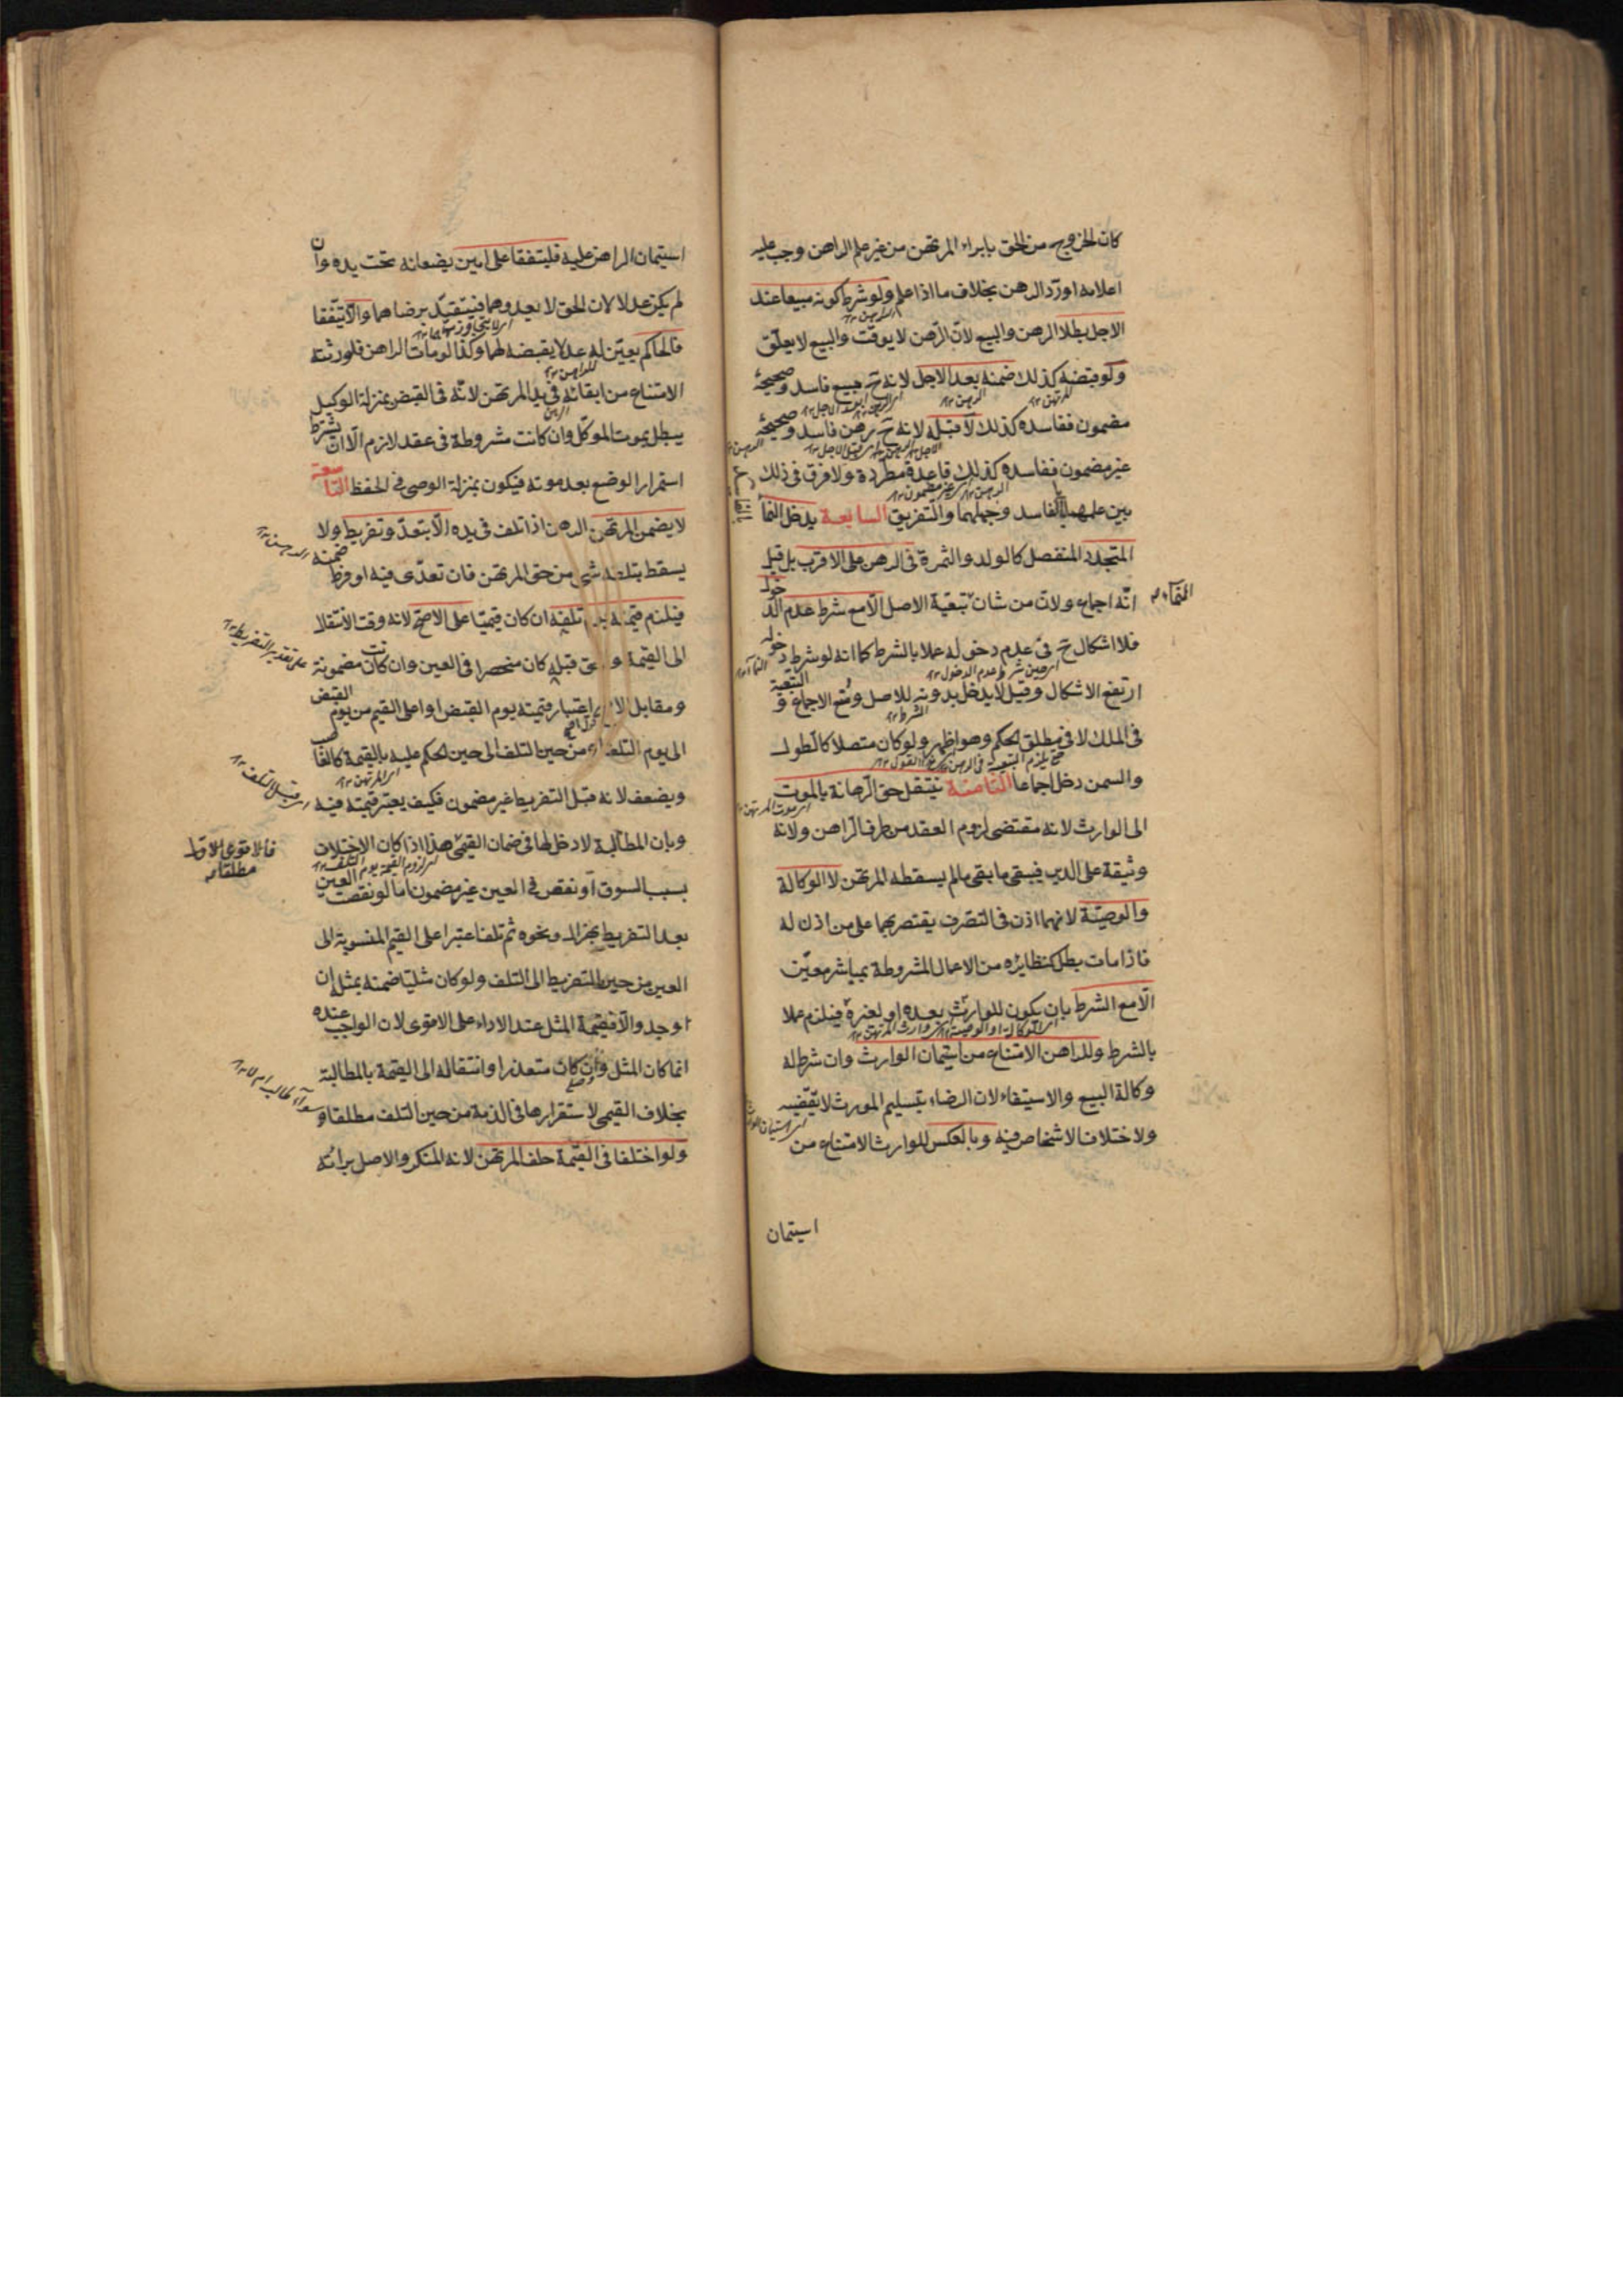 كان الخروج من الحق بابراء المرتهن من غير علم الراهن وجب عليه
اعلامه او ردّ الرهن بخلاف ما اذا علم ولو شرط كونه مبيعا عند
الاجل بطلا الرهن والبيع لانّ الرّهن لا يوقّت والبيع لا يعلّق
ولو قبضه كذلك ضمنه بعد الاجل لانه ح بيع فاسد وصحيحه
مضمون ففاسده كذلك لا قبله لانه ح رهن فاسد وصحيحه
غير مضمون ففاسده كذلك قاعدة مطّردة ولا فرق في ذلك
بين علمهما بالفاسد وجهلهما والتفريق السابعة يدخل النماء
المتجدد المنفصل كالولد والثمرة في الرهن على الاقرب بل قيل
انّه اجماع ولانّ من شان تبعيّة الاصل الّا مع شرط عدم الدخول
النماء
فلا اشكال ح في عدم دخوله عملا بالشرط كما انه لو شرط دخوله
ارتفع الاشكال وقيل لا يدخل بدونه للاصل ومنع الاجماع والتبعية
في الملك لا في مطلق الحكم وهو اظهر ولو كان متصلا كالطول
والسمن دخل اجماعا الثامنة ينتقل حق الرهانة بالموت
الى الوارث لانه مقتضى لزوم العقد من طرف الراهن ولانه
وثيقة على الدين فيبقى ما بقى ما لم يسقطه المرتهن لا الوكالة
والوصيّة لانهما اذن في التصّرف يقتصر بهما على من اذن له
فاذا مات بطل كنظائره من الاعمال المشروطة بمباشر معيّن
الّا مع الشرط بان يكون للوارث بعده او لغيره فيلزم عملا
بالشرط وللراهن الامتناع من استيمان الوارث وان شرط له
وكالة البيع والاستيفاء لان الرضاء بتسليم المورث لا يقتضيه
ولاختلاف الاشخاص فيه وبالعكس للوارث الامتناع من
استيمان
استيمان الراهن عليه فليتفقا على امين يضعانه تحت يده وان
لم يكن عدلا لان الحق لا يعدوهما فيتقيّد برضاهما والّا يتّفقا
فالحاكم يعيّن له عدلا يقبضه لهما وكذا لو مات الراهن فلورثته
الامتناع من ابقائه في يد المرتهن لانّه في القبض بمنزلة الوكيل
يبطل بموت الموكّل وان كانت مشروطة في عقد لازم الّا ان يشترط
استمرار الوضع بعد موته فيكون بمنزلة الوصى في الحفظ التاسعة
لا يضمن المرتهن الرهن اذا تلف في يده الّا بتعدّ وتفريط ولا
يسقط بتلفه شى من حق المرتهن فان تعدّى فيه او فرط ضمنه
فيلزم قيمته يوم تلفه ان كان قيميّا على الاصحّ لانه وقت الانتقال
الى القيمة والحق قبله كان منحصرا في العين وان كانت مضمونة
على تقدير التفريط
ومقابل الاصح اعتبار قيمته يوم القبض او اعلى القيم من يوم القبض
الى يوم التلف او من حين التلف الى حين الحكم عليه بالقيمة كالغاصب
ويضعف لانه قبل التفريط غير مضمون فكيف يعتبر قيمته فيه
وبان المطالبة لا دخل لها في ضمان القيمي هذا اذا كان الاختلاف
فالاقوى الاول
مطلقا
بسبب السوق او نقص في العين غير مضمون اما لو نقصت العين
بعد التفريط بهزال ونحوه ثم تلف اعتبر اعلى القيم المنسوبة الى
العين من حين التفريط الى التلف ولو كان مثليّا ضمنه بمثله ان
وجد والّا فقيمة المثل عند الاداء على الاقوى لان الواجب عنده
انما كان المثل وان كان متعذرا وانتقاله الى القيمة بالمطالبة
بخلاف القيمي لاستقرارها في الذمة من حين التلف مطلقا و
سواء طالب ام لا
ولو اختلفا في القيمة حلف المرتهن لانه المنكر والاصل برائته